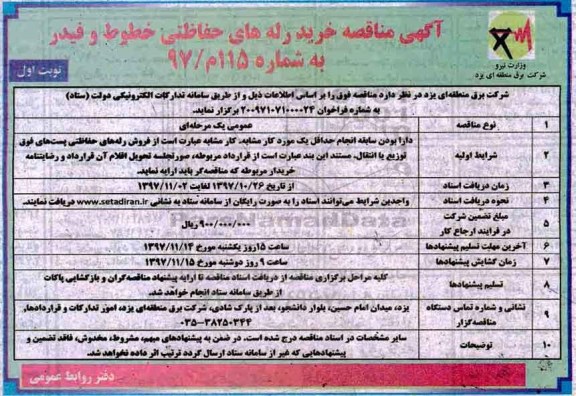 آگهی مناقصه خرید رله های حفاظتی خطوط و فیدر
به شماره ۱۱۵م/۹۷
نوبت اول
وزارت نیرو
شرکت برق منطقه ای یزد
شرکت برق منطقه‌ای یزد در نظر دارد مناقصه فوق را بر اساس اطلاعات ذیل و از طریق سامانه تدارکات الکترونیکی دولت (ستاد)
به شماره فراخوان ۲۰۰۹۷۱۰۷۱۰۰۰۰۲۴ برگزار نماید.
۱ نوع مناقصه عمومی یک مرحله‌ای
۲ شرایط اولیه دارا بودن سابقه انجام حداقل یک مورد کار مشابه. کار مشابه عبارت است از فروش رله‌های حفاظتی پست‌های فوق
توزیع یا انتقال. مستند این بند عبارت است از قرارداد مربوطه، صورتجلسه تحویل اقلام آن قرارداد و رضایتنامه
خریدار مربوطه که مناقصه‌گر باید ارایه نماید.
۳ زمان دریافت اسناد از تاریخ ۱۳۹۷/۱۰/۲۶ لغایت ۱۳۹۷/۱۱/۰۲
۴ نحوه دریافت اسناد واجدین شرایط می‌توانند اسناد را به صورت رایگان از سامانه ستاد به نشانی www.setadiran.ir دریافت نمایند.
۵ مبلغ تضمین شرکت
در فرایند ارجاع کار ۹۰۰/۰۰۰/۰۰۰ ریال
۶ آخرین مهلت تسلیم پیشنهادها ساعت ۱۵ روز یکشنبه مورخ ۱۳۹۷/۱۱/۱۴
۷ زمان گشایش پیشنهادها ساعت ۹ روز دوشنبه مورخ ۱۳۹۷/۱۱/۱۵
۸ تسلیم پیشنهادها کلیه مراحل برگزاری مناقصه از دریافت اسناد مناقصه تا ارایه پیشنهاد مناقصه‌گران و بازگشایی پاکات
از طریق سامانه ستاد انجام خواهد شد.
۹ نشانی و شماره تماس دستگاه
مناقصه‌گزار یزد، میدان امام حسین، بلوار دانشجو، بعد از پارک شادی، شرکت برق منطقه‌ای یزد، امور تدارکات و قراردادها،
۰۳۵-۳۸۲۵۰۳۴۴
۱۰ توضیحات سایر مشخصات در اسناد مناقصه درج شده است. در ضمن به پیشنهادهای مبهم، مشروط، مخدوش، فاقد تضمین و
پیشنهادهایی که غیر از سامانه ستاد ارسال گردد ترتیب اثر داده نخواهد شد.
دفتر روابط عمومی